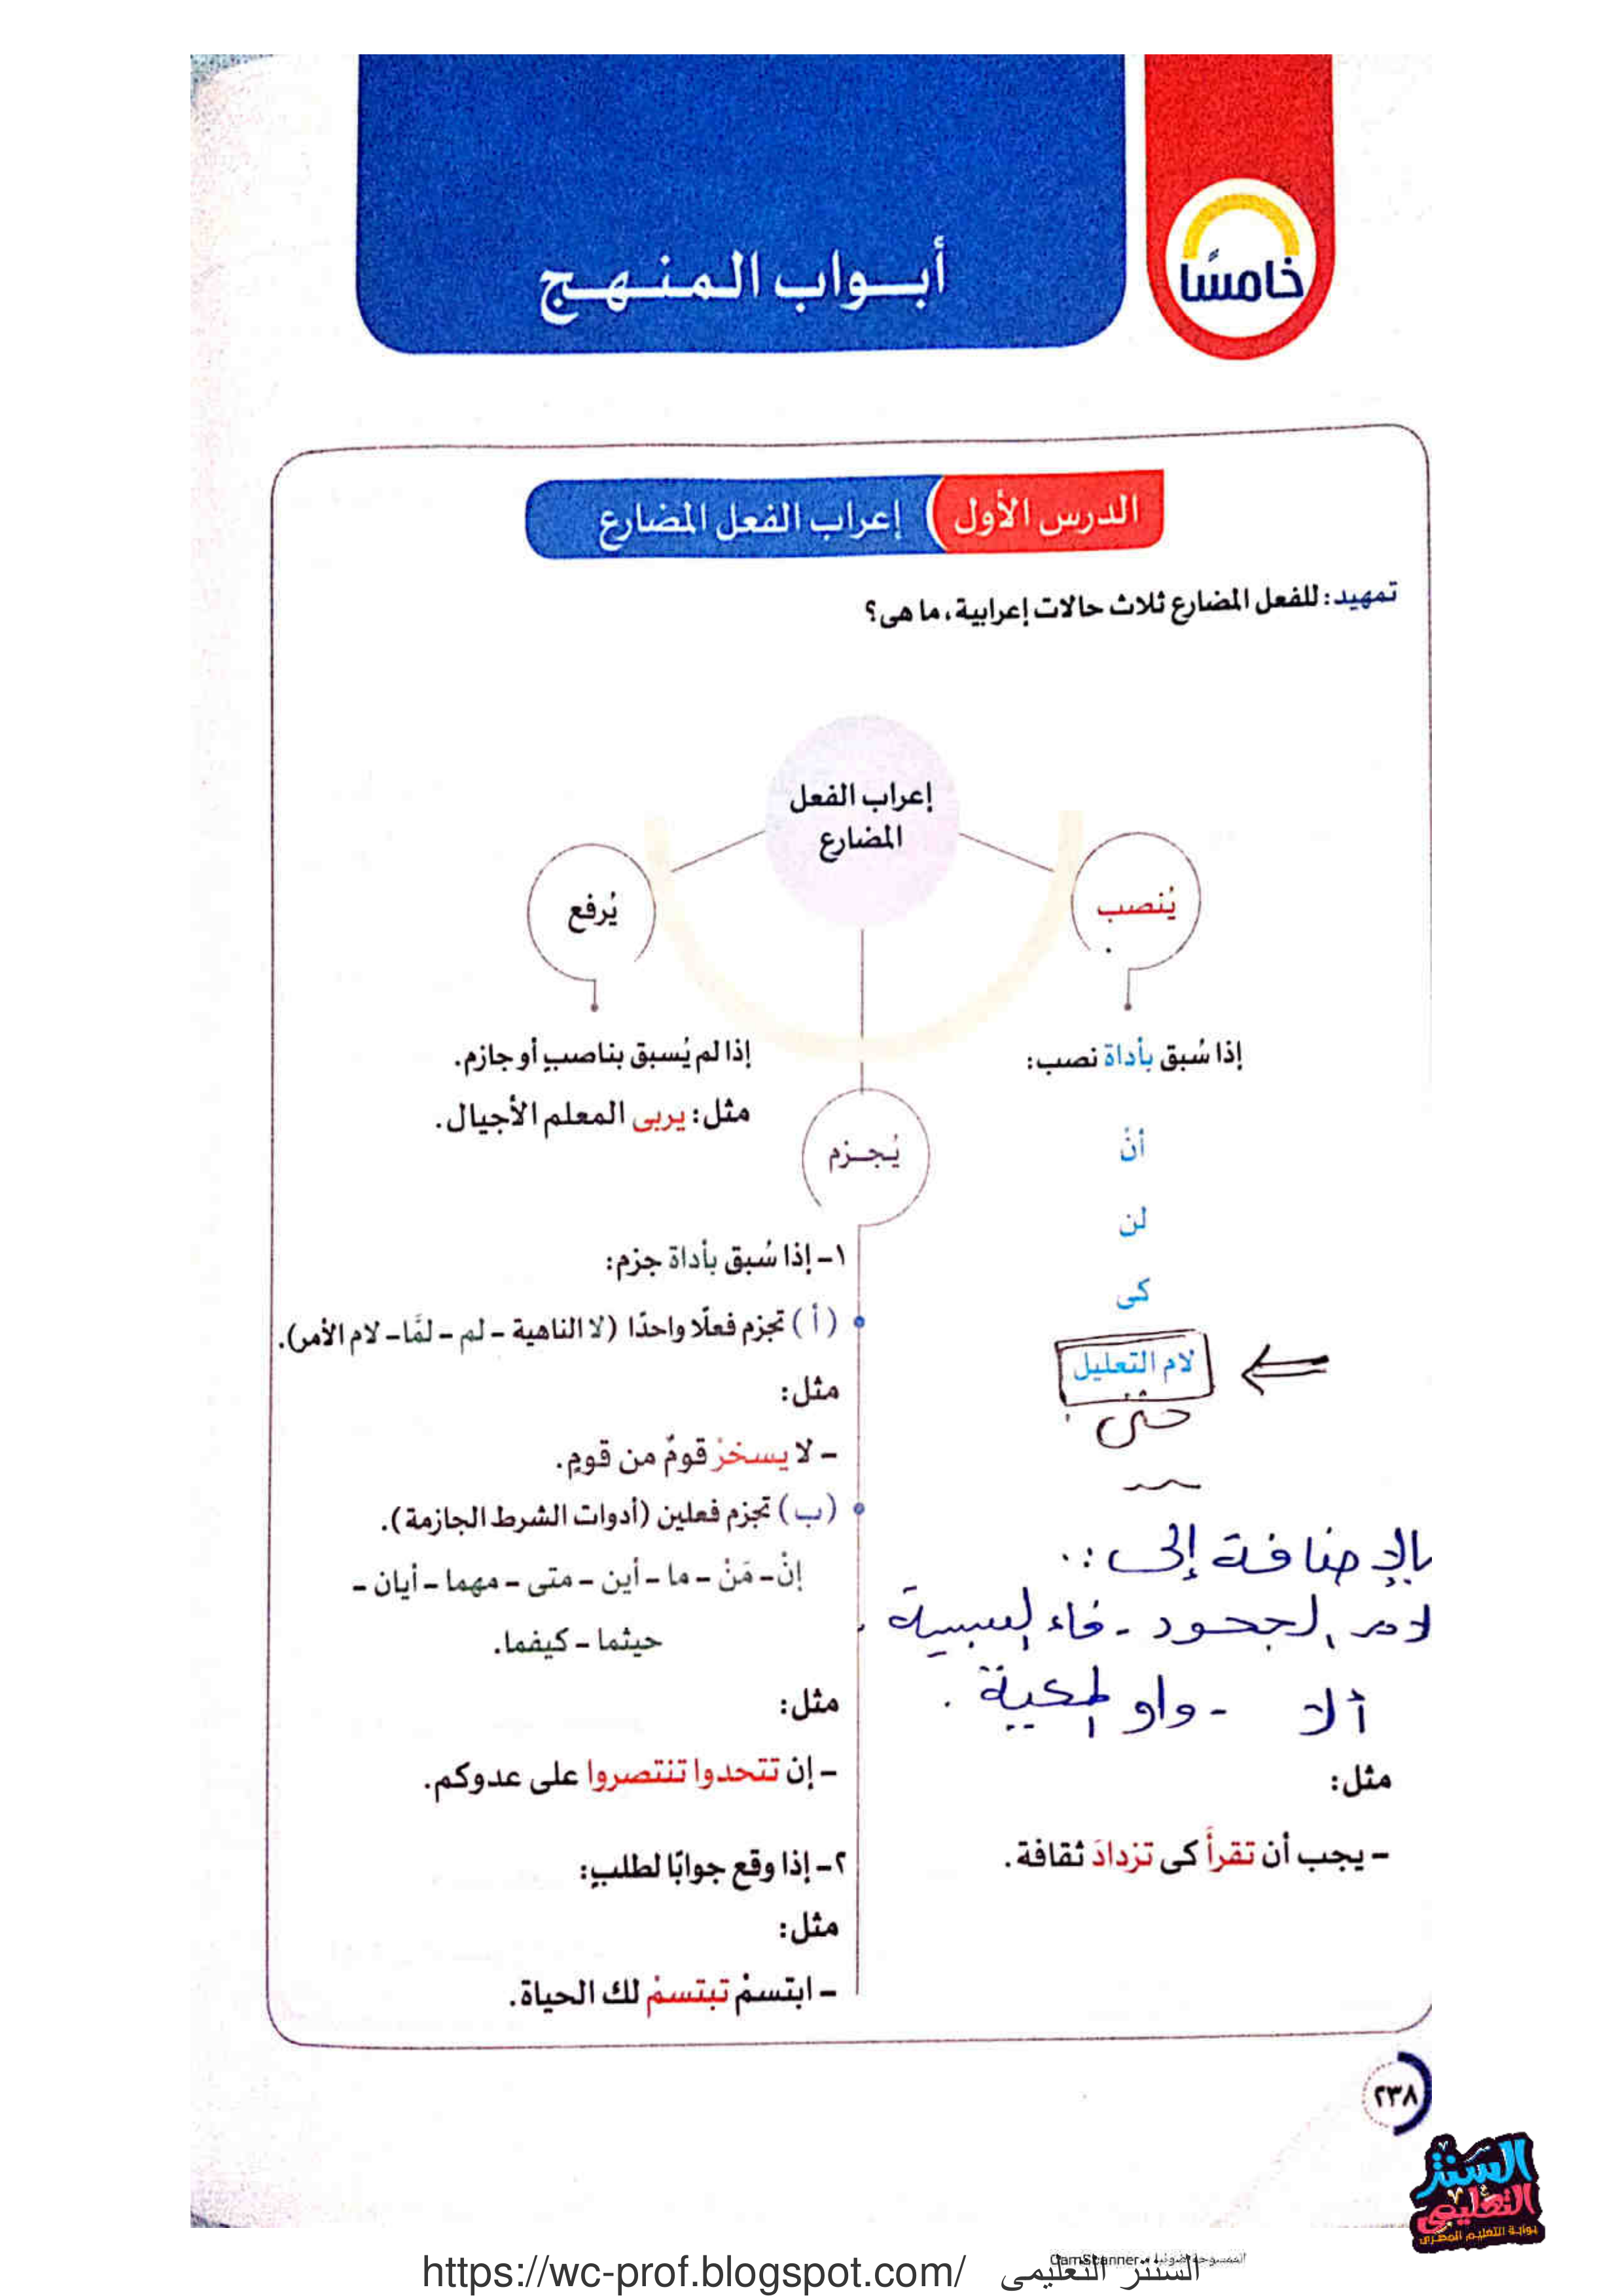 خامسًا
أبواب المنهج
الدرس الأول
إعراب الفعل المضارع
تمهيد: للفعل المضارع ثلاث حالات إعرابية، ما هى؟
إعراب الفعل
المضارع
يُنصب
إذا سُبق بأداة نصب:
أنْ
لن
كى
لام التعليل
حتى
بالإضافة إلى:
لام الجحود - فاء السببية
ألا - واو المعية.
مثل:
- يجب أن تقرأَ كى تزدادَ ثقافة.
يُرفع
إذا لم يُسبق بناصبٍ أو جازم.
مثل: يربى المعلم الأجيال.
يُجزم
١- إذا سُبق بأداة جزم:
(أ) تجزم فعلًا واحدًا (لا الناهية - لم - لمَّا - لام الأمر).
مثل:
- لا يسخرْ قومٌ من قومٍ.
(ب) تجزم فعلين (أدوات الشرط الجازمة).
إنْ - مَنْ - ما - أين - متى - مهما - أيان -
حيثما - كيفما.
مثل:
- إن تتحدوا تنتصروا على عدوكم.
٢- إذا وقع جوابًا لطلبٍ:
مثل:
- ابتسمْ تبتسمْ لك الحياة.
٢٣٨
السنتر
التعليمى
بوابة التعليم المصرى
الممسوحة ضوئيا بـ CamScanner
https://wc-prof.blogspot.com/ السنتر التعليمى